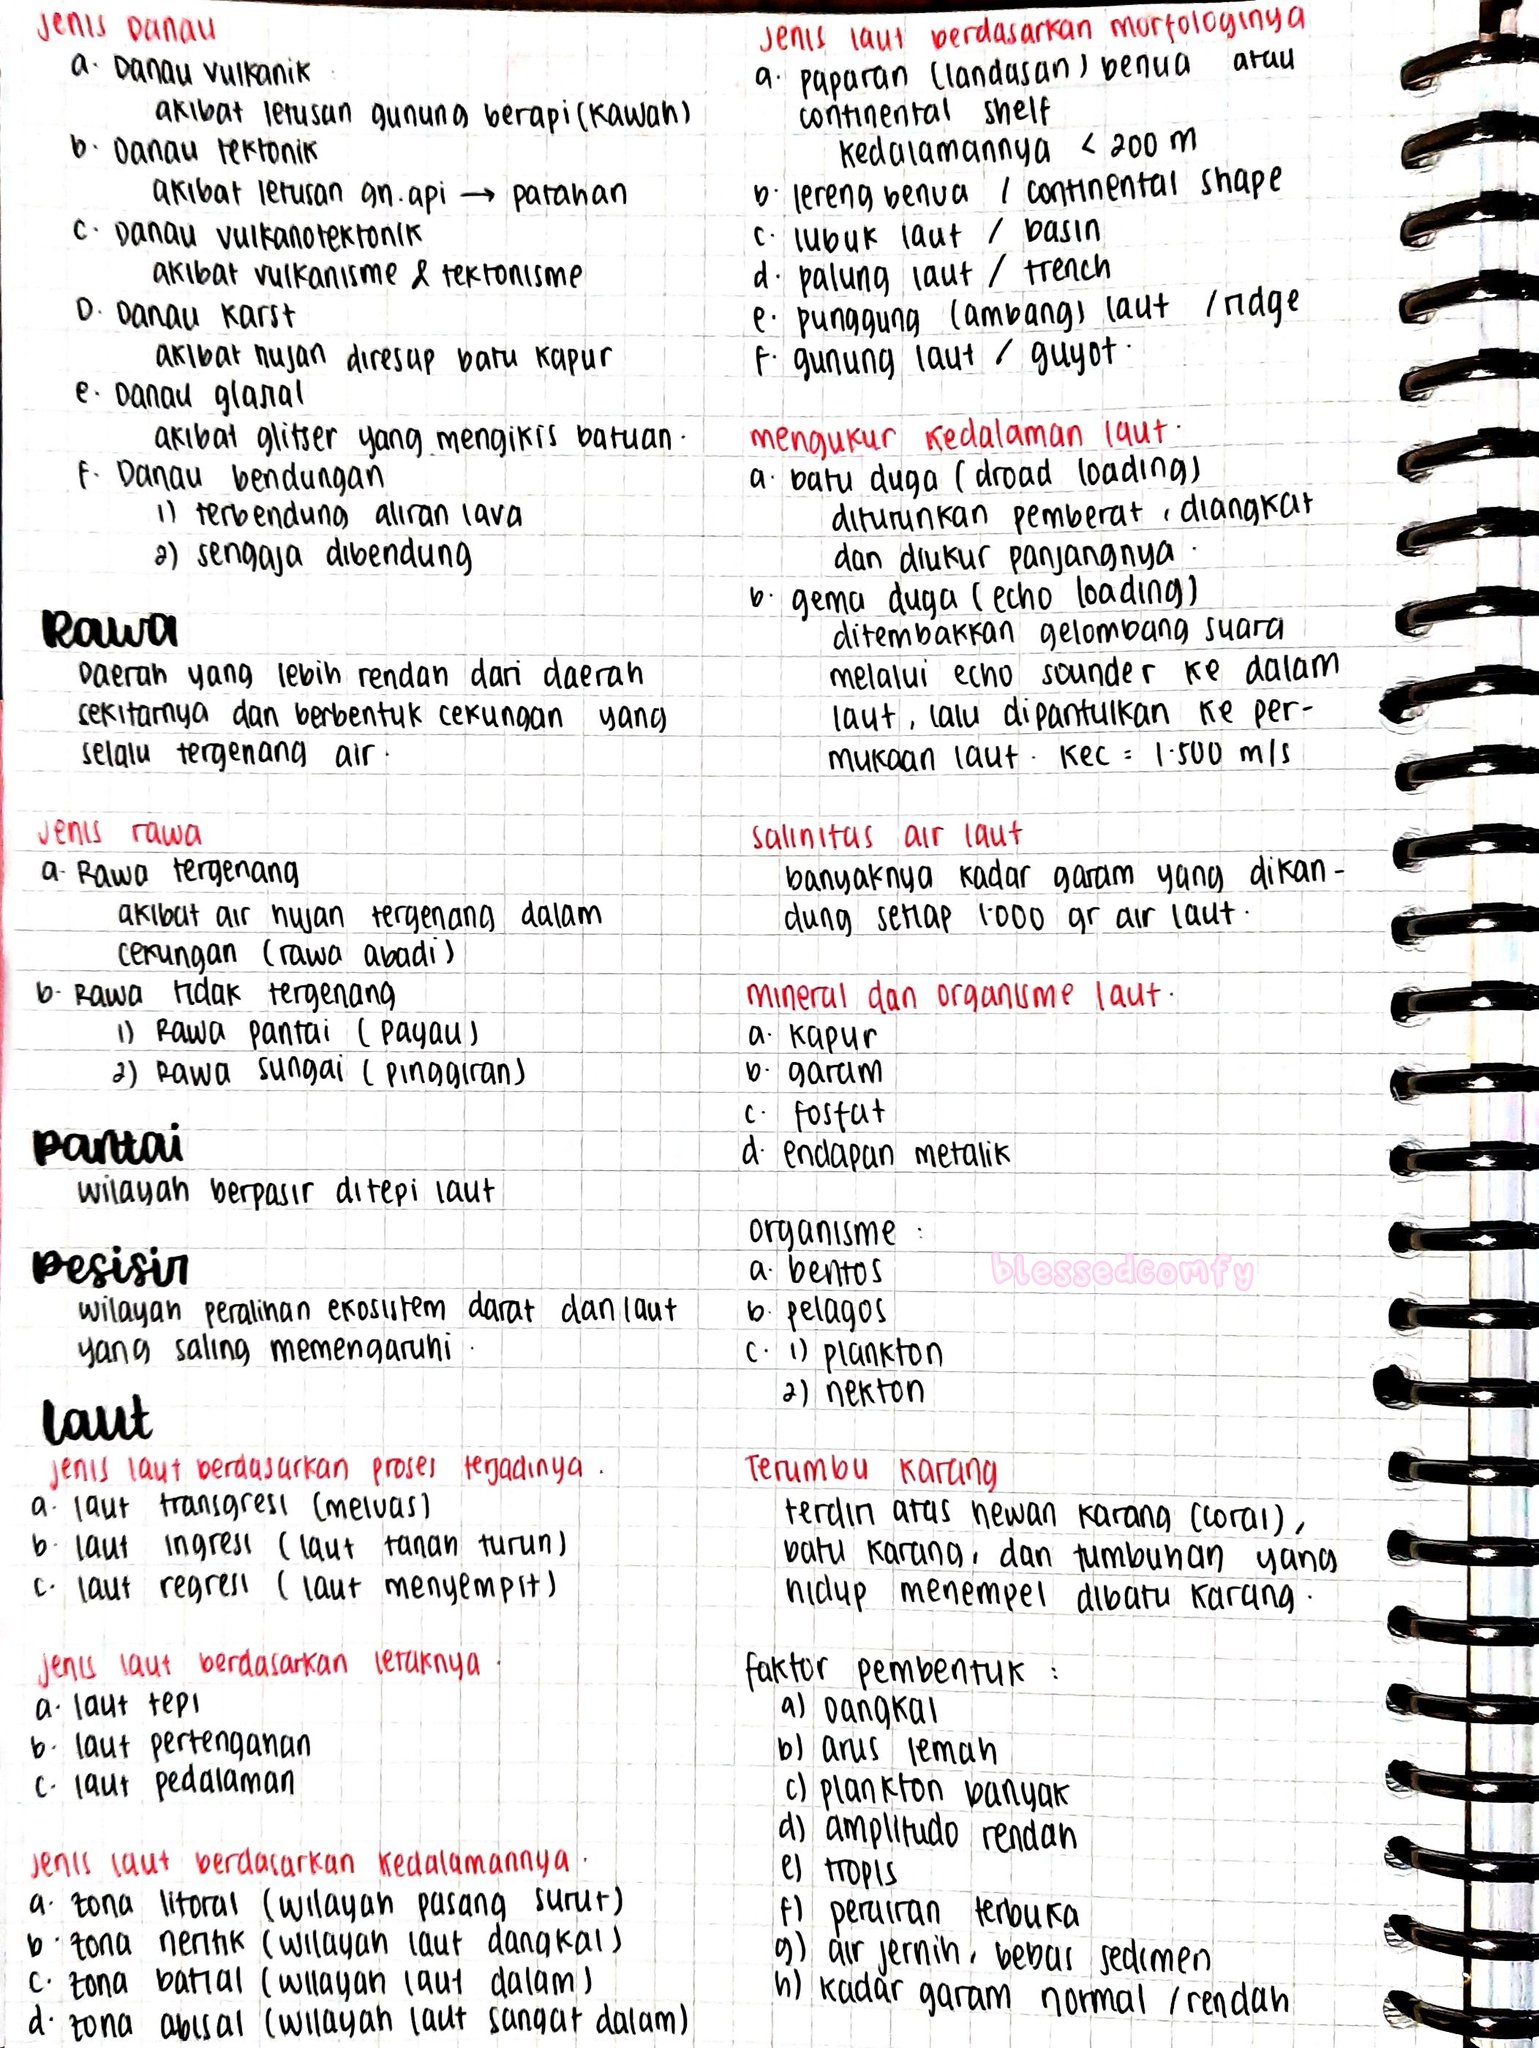 jenis Danau
a. Danau vulkanik
akibat letusan gunung berapi (kawah)
b. Danau tektonik
akibat letusan gn.api → patahan
c. Danau vulkanotektonik
akibat vulkanisme & tektonisme
D. Danau karst
akibat hujan diresap batu kapur
e. Danau glasial
akibat glitser yang mengikis batuan.
f. Danau bendungan
1) terbendung aliran lava
2) sengaja dibendung
Rawa
Daerah yang lebih rendah dari daerah
sekitarnya dan berbentuk cekungan yang
selalu tergenang air.
jenis rawa
a. Rawa tergenang
akibat air hujan tergenang dalam
cekungan (rawa abadi)
b. Rawa tidak tergenang
1) Rawa pantai (payau)
2) Rawa sungai (pinggiran)
pantai
wilayah berpasir ditepi laut
pesisir
wilayah peralihan ekosistem darat dan laut
yang saling memengaruhi.
laut
jenis laut berdasarkan proses terjadinya.
a. laut transgresi (meluas)
b. laut ingresi (laut tanah turun)
c. laut regresi (laut menyempit)
jenis laut berdasarkan letaknya.
a. laut tepi
b. laut pertengahan
c. laut pedalaman
jenis laut berdasarkan kedalamannya.
a. zona litoral (wilayah pasang surut)
b. zona neritik (wilayah laut dangkal)
c. zona batial (wilayah laut dalam)
d. zona abisal (wilayah laut sangat dalam)
jenis laut berdasarkan morfologinya
a. paparan (landasan) benua atau
continental shelf
kedalamannya < 200 m
b. lereng benua / continental shape
c. lubuk laut / basin
d. palung laut / trench
e. punggung (ambang) laut / ridge
f. gunung laut / guyot.
mengukur kedalaman laut.
a. batu duga (droad loading)
diturunkan pemberat, diangkat
dan diukur panjangnya.
b. gema duga (echo loading)
ditembakkan gelombang suara
melalui echo sounder ke dalam
laut, lalu dipantulkan ke per-
mukaan laut. kec = 1.500 m/s
salinitas air laut
banyaknya kadar garam yang dikan-
dung setiap 1.000 gr air laut.
mineral dan organisme laut.
a. kapur
b. garam
c. fosfat
d. endapan metalik
organisme :
a. bentos
b. pelagos
c. 1) plankton
2) nekton
blessedcomfy
Terumbu karang
terdiri atas hewan karang (coral),
batu karang, dan tumbuhan yang
hidup menempel dibatu karang.
faktor pembentuk :
a) Dangkal
b) arus lemah
c) plankton banyak
d) amplitudo rendah
e) tropis
f) perairan terbuka
g) air jernih, bebas sedimen
h) kadar garam normal / rendah